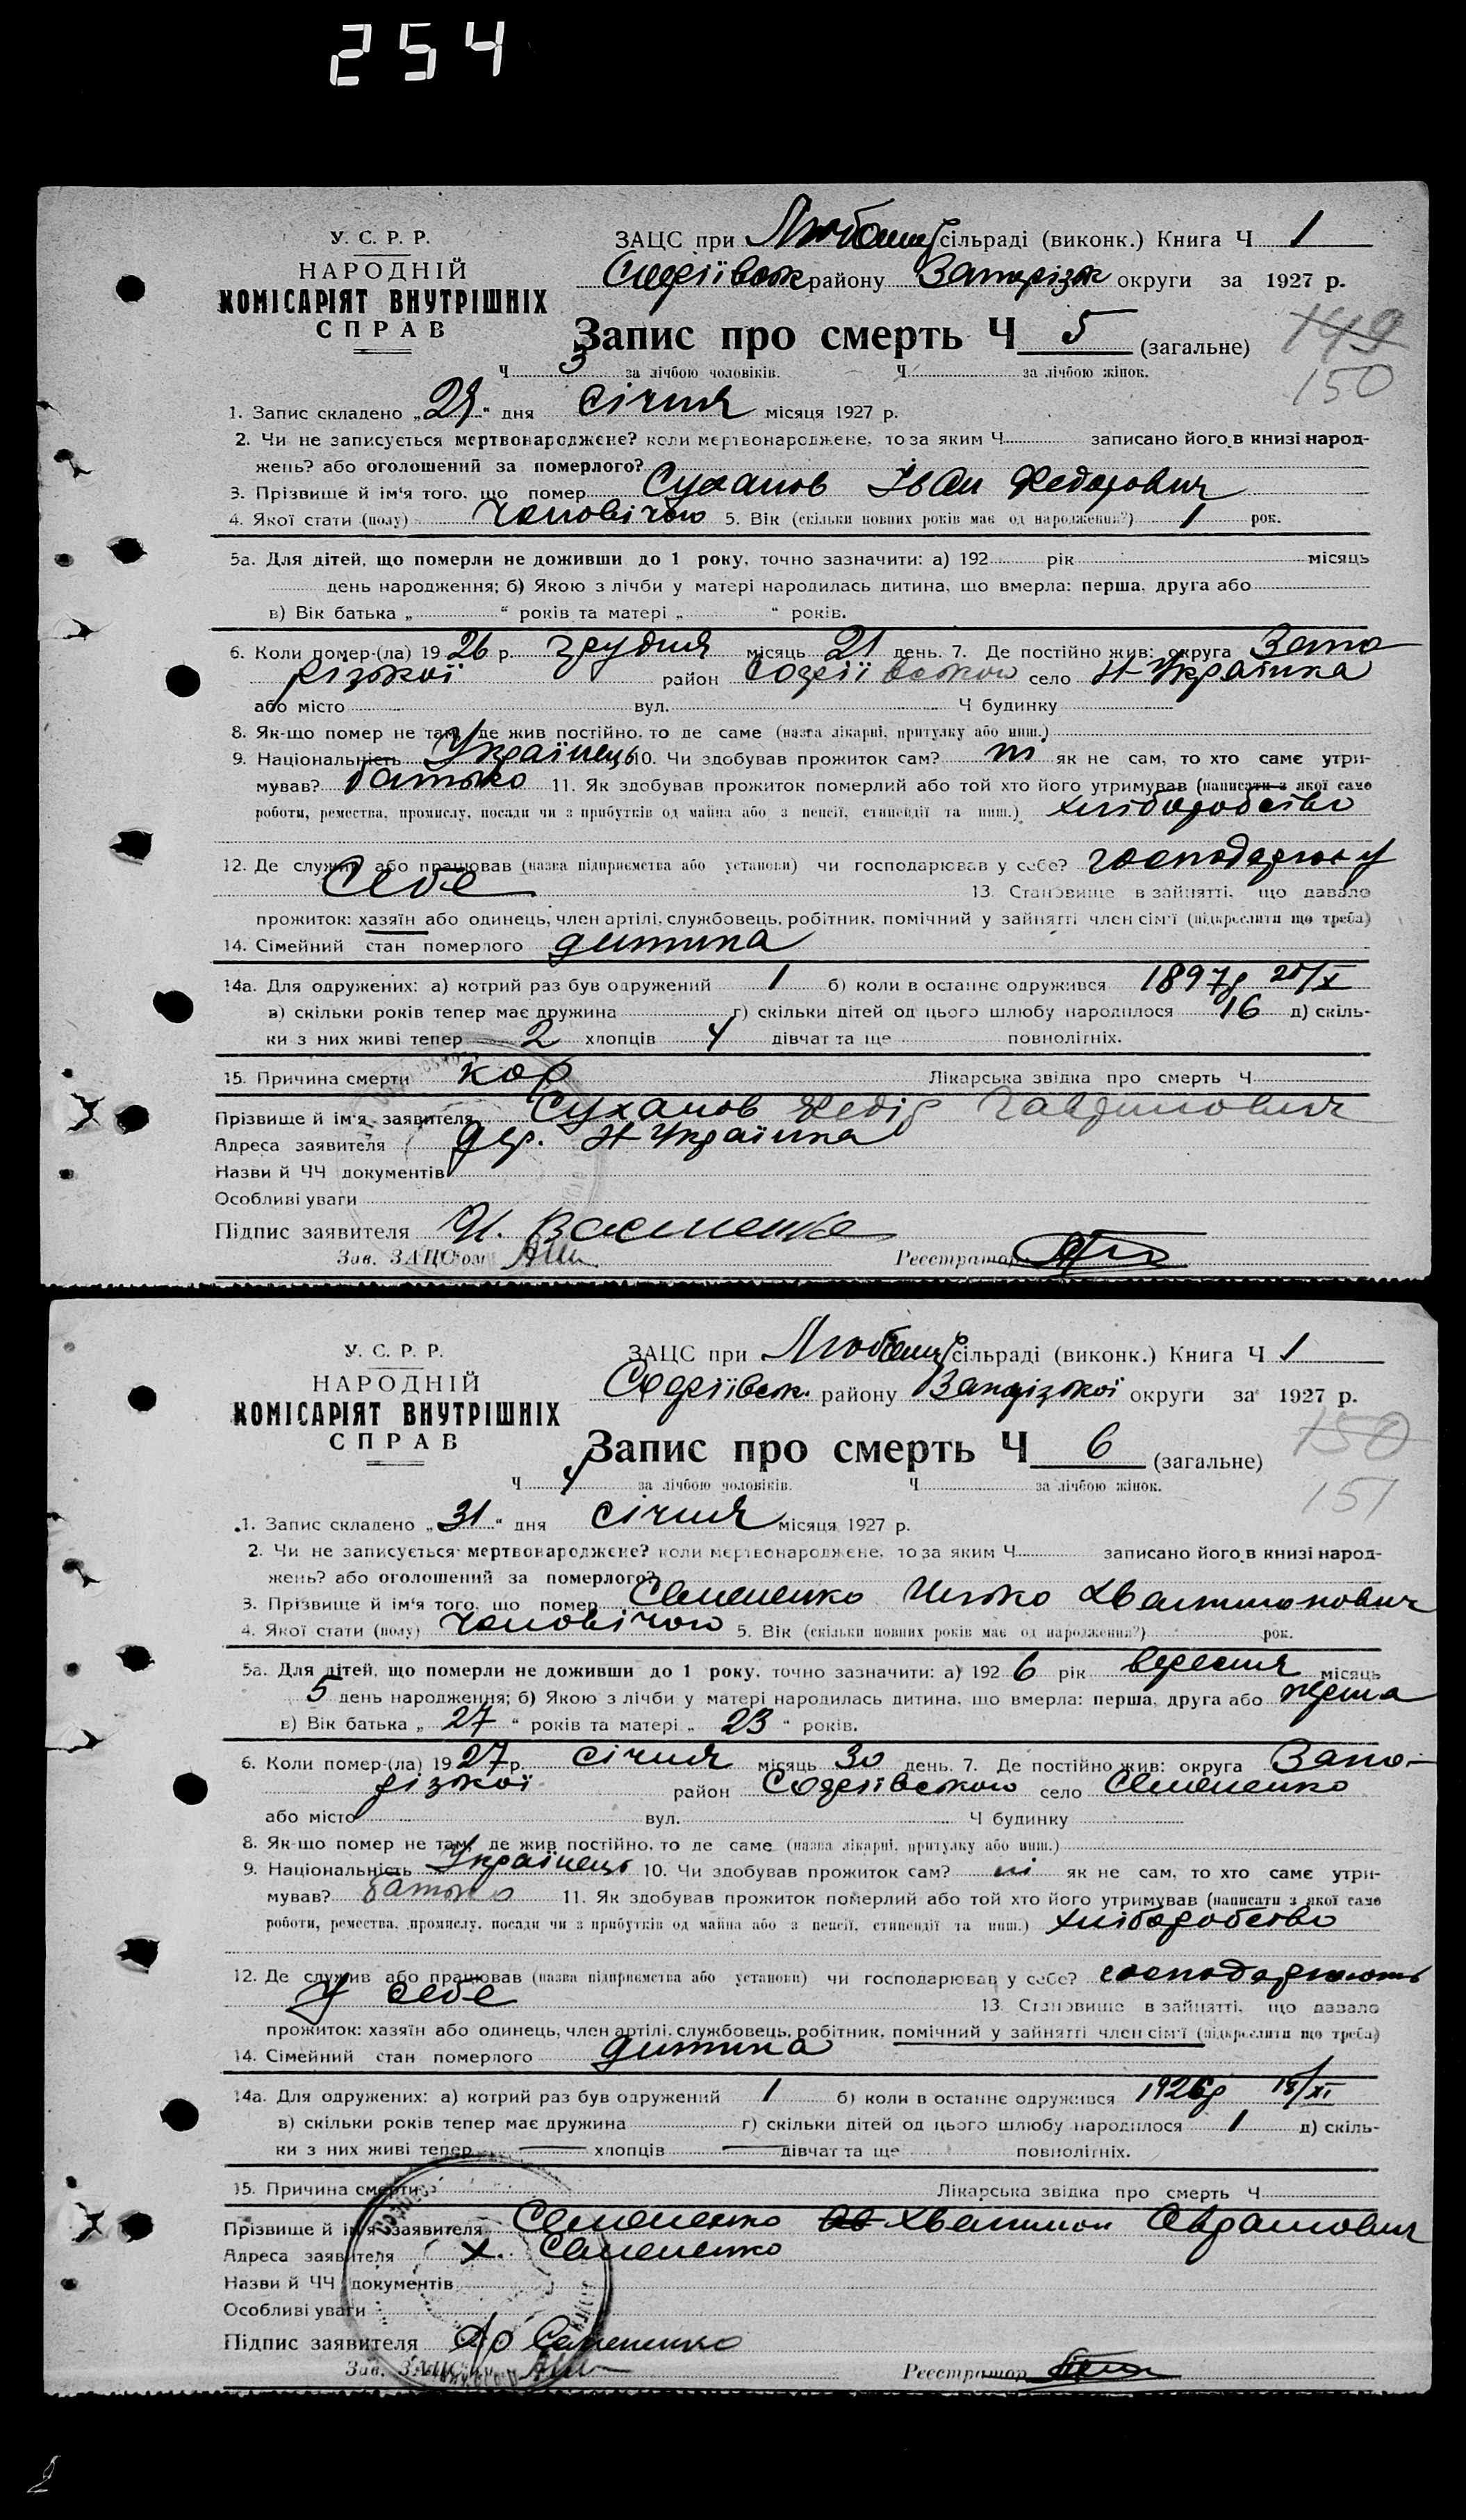 254
У. С. Р. Р.
НАРОДНІЙ
КОМІСАРІЯТ ВНУТРІШНІХ
СПРАВ
ЗАЦС при сільраді (виконк.) Книга Ч 1
району Запорізьк округи за 1927 р.
Запис про смерть Ч 5 (загальне)
149
150
Ч 3 за лічбою чоловіків. Ч за лічбою жінок.
1. Запис складено „ “ дня січня місяця 1927 р.
2. Чи не записується мертвонароджене? коли мертвонароджене, то за яким Ч записано його в книзі народ-
жень? або оголошений за померлого?
3. Прізвище й ім'я того, що помер Суханов Іван Федорович
4. Якої стати (полу) чоловічою 5. Вік (скільки повних років має од народження?) 1 рок.
5а. Для дітей, що померли не доживши до 1 року, точно зазначити: а) 192 рік місяць
день народження; б) Якою з лічби у матері народилась дитина, що вмерла: перша, друга або
в) Вік батька „ “ років та матері „ “ років.
6. Коли помер-(ла) 1926 р. грудня місяць 21 день. 7. Де постійно жив: округа Запо-
різької район село Н-Українка
або місто вул. Ч будинку
8. Як-що помер не там, де жив постійно, то де саме (назва лікарні, притулку або инш.)
9. Національність Українець 10. Чи здобував прожиток сам? ні як не сам, то хто саме утри-
мував? батько 11. Як здобував прожиток померлий або той хто його утримував (написати з якої саме
роботи, ремества, промислу, посади чи з прибутків од майна або з пенсії, стипендії та инш.) хліборобство
12. Де служив або працював (назва підприємства або установи) чи господарював у себе? господарює у
себе 13. Становище в зайнятті, що давало
прожиток: хазяїн або одинець, член артілі, службовець, робітник, помічний у зайнятті член сім'ї (підкреслити що треба)
14. Сімейний стан померлого дитина
14а. Для одружених: а) котрий раз був одружений 1 б) коли в останнє одружився 1897р 20/X
в) скільки років тепер має дружина г) скільки дітей од цього шлюбу народилося 16 д) скіль-
ки з них живі тепер 2 хлопців 4 дівчат та ще повнолітніх.
15. Причина смерти кор Лікарська звідка про смерть Ч
Прізвище й ім'я заявителя Суханов Федір Гаврилович
Адреса заявителя дер. Н-Українка
Назви й ЧЧ документів
Особливі уваги
Підпис заявителя
Зав. ЗАЦС'ом Реєстратор
У. С. Р. Р.
НАРОДНІЙ
КОМІСАРІЯТ ВНУТРІШНІХ
СПРАВ
ЗАЦС при сільраді (виконк.) Книга Ч 1
району Запорізької округи за 1927 р.
Запис про смерть Ч 6 (загальне)
150
151
Ч 4 за лічбою чоловіків. Ч за лічбою жінок.
1. Запис складено „31“ дня січня місяця 1927 р.
2. Чи не записується мертвонароджене? коли мертвонароджене, то за яким Ч записано його в книзі народ-
жень? або оголошений за померлого?
3. Прізвище й ім'я того, що помер Семененко
4. Якої стати (полу) чоловічою 5. Вік (скільки повних років має од народження?) рок.
5а. Для дітей, що померли не доживши до 1 року, точно зазначити: а) 1926 рік вересня місяць
5 день народження; б) Якою з лічби у матері народилась дитина, що вмерла: перша, друга або перша
в) Вік батька „27“ років та матері „23“ років.
6. Коли помер-(ла) 1927 р. січня місяць 30 день. 7. Де постійно жив: округа Запо-
різької район село Семененко
або місто вул. Ч будинку
8. Як-що помер не там, де жив постійно, то де саме (назва лікарні, притулку або инш.)
9. Національність Українець 10. Чи здобував прожиток сам? ні як не сам, то хто саме утри-
мував? батько 11. Як здобував прожиток померлий або той хто його утримував (написати з якої саме
роботи, ремества, промислу, посади чи з прибутків од майна або з пенсії, стипендії та инш.) хліборобство
12. Де служив або працював (назва підприємства або установи) чи господарював у себе? господарюють
у себе 13. Становище в зайнятті, що давало
прожиток: хазяїн або одинець, член артілі, службовець, робітник, помічний у зайнятті член сім'ї (підкреслити що треба)
14. Сімейний стан померлого дитина
14а. Для одружених: а) котрий раз був одружений 1 б) коли в останнє одружився
в) скільки років тепер має дружина г) скільки дітей од цього шлюбу народилося 1 д) скіль-
ки з них живі тепер — хлопців — дівчат та ще повнолітніх.
15. Причина смерти Лікарська звідка про смерть Ч
Прізвище й ім'я заявителя Семененко Хвалимон Аврамович
Адреса заявителя х. Семененко
Назви й ЧЧ документів
Особливі уваги
Підпис заявителя Семененко
Зав. ЗАЦС'ом Реєстратор